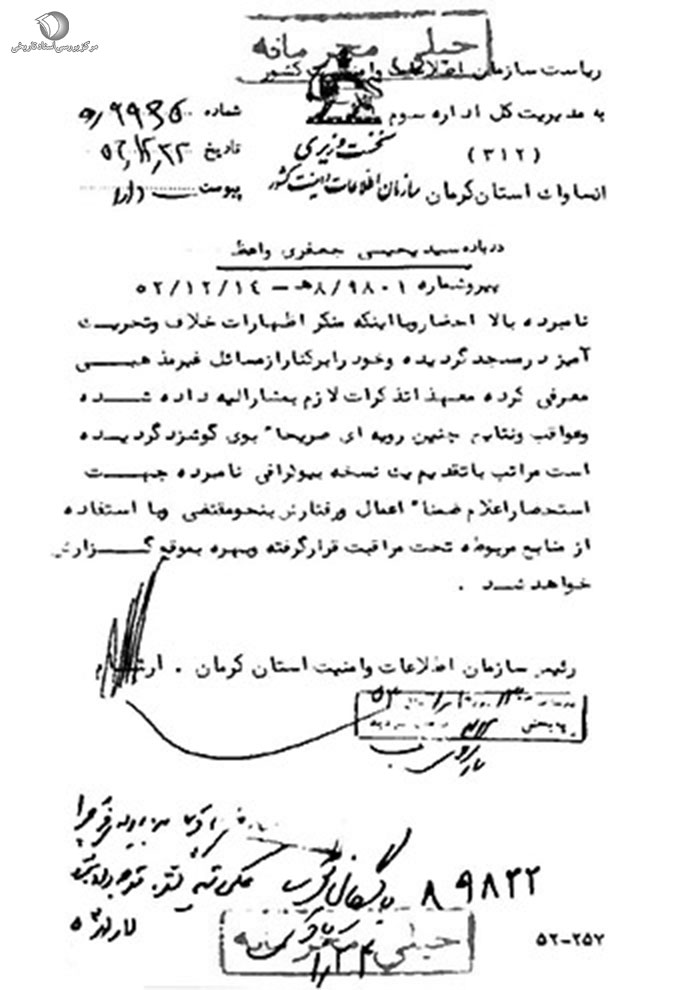 مرکز بررسی اسناد تاریخی
خیلی محرمانه
ریاست سازمان اطلاعات و امنیت کشور
به مدیریت کل اداره سوم
شماره
(۳۱۲)
نخست وزیری
تاریخ ۵۲/۱۲/۲۲
از ساواک استان کرمان
سازمان اطلاعات و امنیت کشور
پیوست دارد
درباره سید یحیی جعفری واعظ
پیرو شماره ۸/۹۸۰۱ه‍ - ۵۲/۱۲/۱۴
نامبرده بالا احضار و با اینکه منکر اظهارات خلاف و تحریک
آمیز در مسجد گردیده و خود را برکنار از مسائل غیر مذهبی
معرفی کرده معهذا تذکرات لازم بمشارالیه داده شده
و عواقب و نتایج چنین رویه ای صریحا" بوی گوشزد گردیده
است مراتب با تقدیم یک نسخه بیوگرافی نامبرده جهت
استحضار اعلام ضمنا" اعمال و رفتارش بنحو مقتضی و با استفاده
از منابع مربوطه تحت مراقبت قرار گرفته و بهره بموقع گزارش
خواهد شد .
رئیس سازمان اطلاعات و امنیت استان کرمان . آرشام
به بخش ۳۱۲
بایگانی
۸۹۸۲۲
خیلی محرمانه
۵۲-۲۵۷